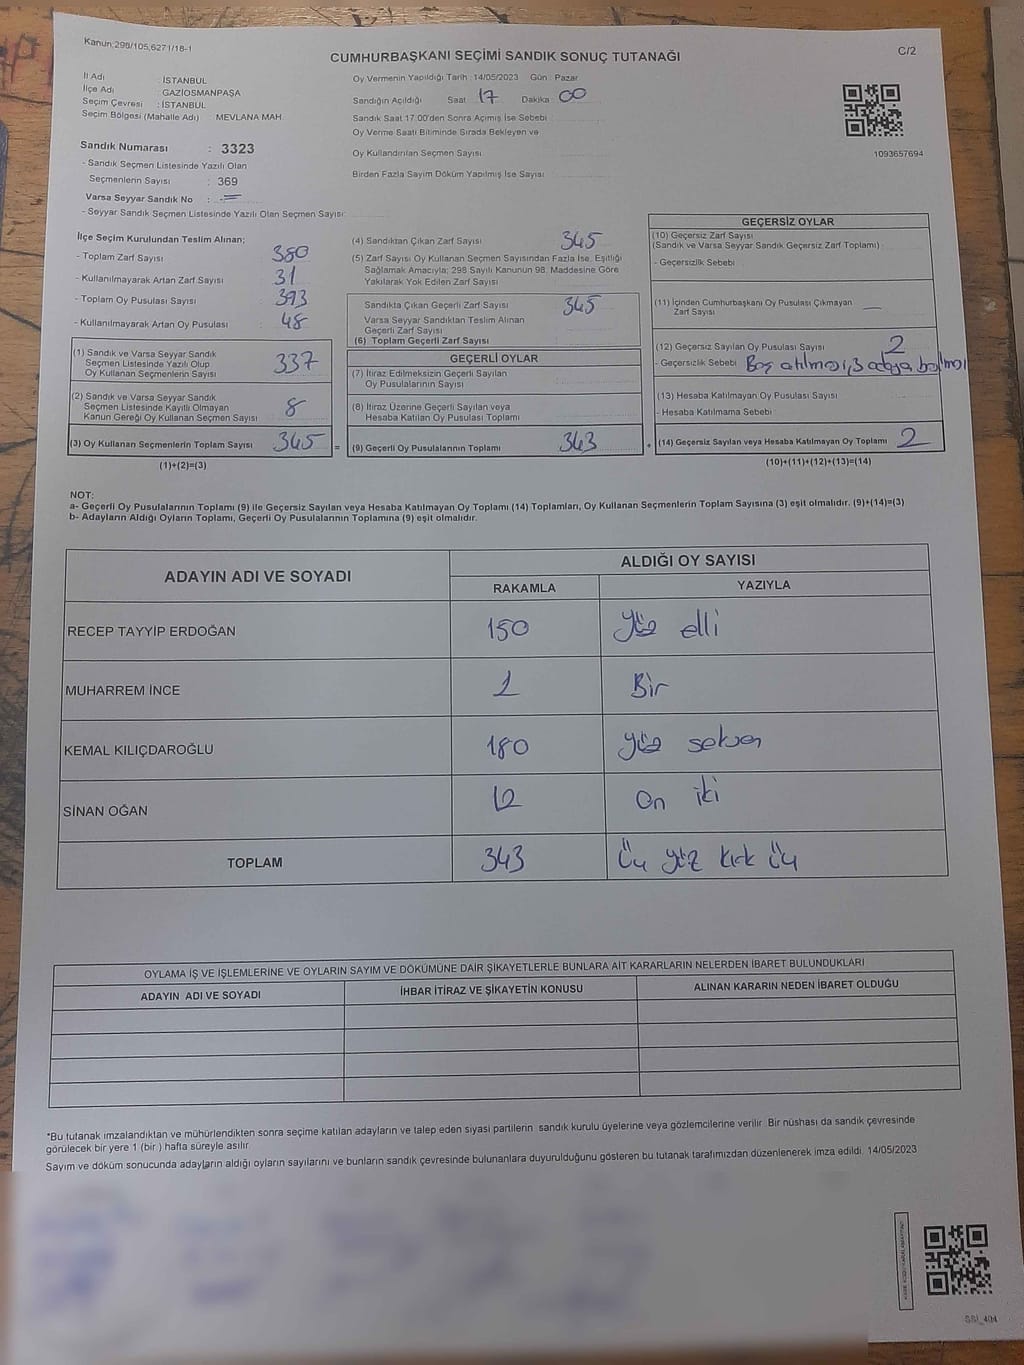 Kanun:298/105,6271/18-1
C/2
CUMHURBAŞKANI SEÇİMİ SANDIK SONUÇ TUTANAĞI
İl Adı : İSTANBUL
İlçe Adı : GAZİOSMANPAŞA
Seçim Çevresi : İSTANBUL
Seçim Bölgesi (Mahalle Adı) MEVLANA MAH.
Sandık Numarası : 3323
- Sandık Seçmen Listesinde Yazılı Olan
Seçmenlerin Sayısı : 369
Varsa Seyyar Sandık No : =
- Seyyar Sandık Seçmen Listesinde Yazılı Olan Seçmen Sayısı:
Oy Vermenin Yapıldığı Tarih : 14/05/2023 Gün : Pazar
Sandığın Açıldığı Saat 17 Dakika 00
Sandık Saat 17:00'den Sonra Açımış İse Sebebi
Oy Verme Saati Bitiminde Sırada Bekleyen ve
Oy Kullandırılan Seçmen Sayısı
Birden Fazla Sayım Döküm Yapılmış İse Sayısı
1093657694
İlçe Seçim Kurulundan Teslim Alınan;
- Toplam Zarf Sayısı : 380
- Kullanılmayarak Artan Zarf Sayısı : 31
- Toplam Oy Pusulası Sayısı : 393
- Kullanılmayarak Artan Oy Pusulası : 48
(1) Sandık ve Varsa Seyyar Sandık
Seçmen Listesinde Yazılı Olup
Oy Kullanan Seçmenlerin Sayısı 337
(2) Sandık ve Varsa Seyyar Sandık
Seçmen Listesinde Kayıtlı Olmayan
Kanun Gereği Oy Kullanan Seçmen Sayısı 8
(3) Oy Kullanan Seçmenlerin Toplam Sayısı 345 =
(1)+(2)=(3)
(4) Sandıktan Çıkan Zarf Sayısı 345
(5) Zarf Sayısı Oy Kullanan Seçmen Sayısından Fazla İse, Eşitliği
Sağlamak Amacıyla; 298 Sayılı Kanunun 98. Maddesine Göre
Yakılarak Yok Edilen Zarf Sayısı
Sandıkta Çıkan Geçerli Zarf Sayısı 345
Varsa Seyyar Sandıktan Teslim Alınan
Geçerli Zarf Sayısı
(6) Toplam Geçerli Zarf Sayısı
GEÇERLİ OYLAR
(7) İtiraz Edilmeksizin Geçerli Sayılan
Oy Pusulalarının Sayısı
(8) İtiraz Üzerine Geçerli Sayılan veya
Hesaba Katılan Oy Pusulası Toplamı
(9) Geçerli Oy Pusulalarının Toplamı 343 +
GEÇERSİZ OYLAR
(10) Geçersiz Zarf Sayısı
(Sandık ve Varsa Seyyar Sandık Geçersiz Zarf Toplamı)
- Geçersizlik Sebebi
(11) İçinden Cumhurbaşkanı Oy Pusulası Çıkmayan
Zarf Sayısı —
(12) Geçersiz Sayılan Oy Pusulası Sayısı 2
- Geçersizlik Sebebi Boş atılması, 3 adaya
(13) Hesaba Katılmayan Oy Pusulası Sayısı
- Hesaba Katılmama Sebebi
(14) Geçersiz Sayılan veya Hesaba Katılmayan Oy Toplamı 2
(10)+(11)+(12)+(13)=(14)
NOT:
a- Geçerli Oy Pusulalarının Toplamı (9) ile Geçersiz Sayılan veya Hesaba Katılmayan Oy Toplamı (14) Toplamları, Oy Kullanan Seçmenlerin Toplam Sayısına (3) eşit olmalıdır. (9)+(14)=(3)
b- Adayların Aldığı Oyların Toplamı, Geçerli Oy Pusulalarının Toplamına (9) eşit olmalıdır.
ADAYIN ADI VE SOYADI
ALDIĞI OY SAYISI
RAKAMLA YAZIYLA
RECEP TAYYİP ERDOĞAN 150 Yüz elli
MUHARREM İNCE 1 Bir
KEMAL KILIÇDAROĞLU 180 Yüz seksen
SİNAN OĞAN 12 On iki
TOPLAM 343 Üç yüz kırk üç
OYLAMA İŞ VE İŞLEMLERİNE VE OYLARIN SAYIM VE DÖKÜMÜNE DAİR ŞİKAYETLERLE BUNLARA AİT KARARLARIN NELERDEN İBARET BULUNDUKLARI
ADAYIN ADI VE SOYADI İHBAR İTİRAZ VE ŞİKAYETİN KONUSU ALINAN KARARIN NEDEN İBARET OLDUĞU
*Bu tutanak imzalandıktan ve mühürlendikten sonra seçime katılan adayların ve talep eden siyasi partilerin sandık kurulu üyelerine veya gözlemcilerine verilir. Bir nüshası da sandık çevresinde
görülecek bir yere 1 (bir ) hafta süreyle asılır.
Sayım ve döküm sonucunda adayların aldığı oyların sayılarını ve bunların sandık çevresinde bulunanlara duyurulduğunu gösteren bu tutanak tarafımızdan düzenlenerek imza edildi. 14/05/2023